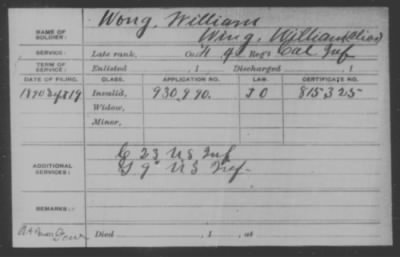 Wong, William
NAME OF SOLDIER: Wing, William Alias
SERVICE: Late rank, Co. H 4, Reg't Cal Inf
TERM OF SERVICE: Enlisted , 1 Discharged , 1
DATE OF FILING. CLASS. APPLICATION NO. LAW. CERTIFICATE NO.
1890 19 Invalid, 930,990. J O 815,325
Widow,
Minor,
ADDITIONAL SERVICES: C 23 US Inf
G 9" US Inf.
REMARKS:
Died , 1 , at